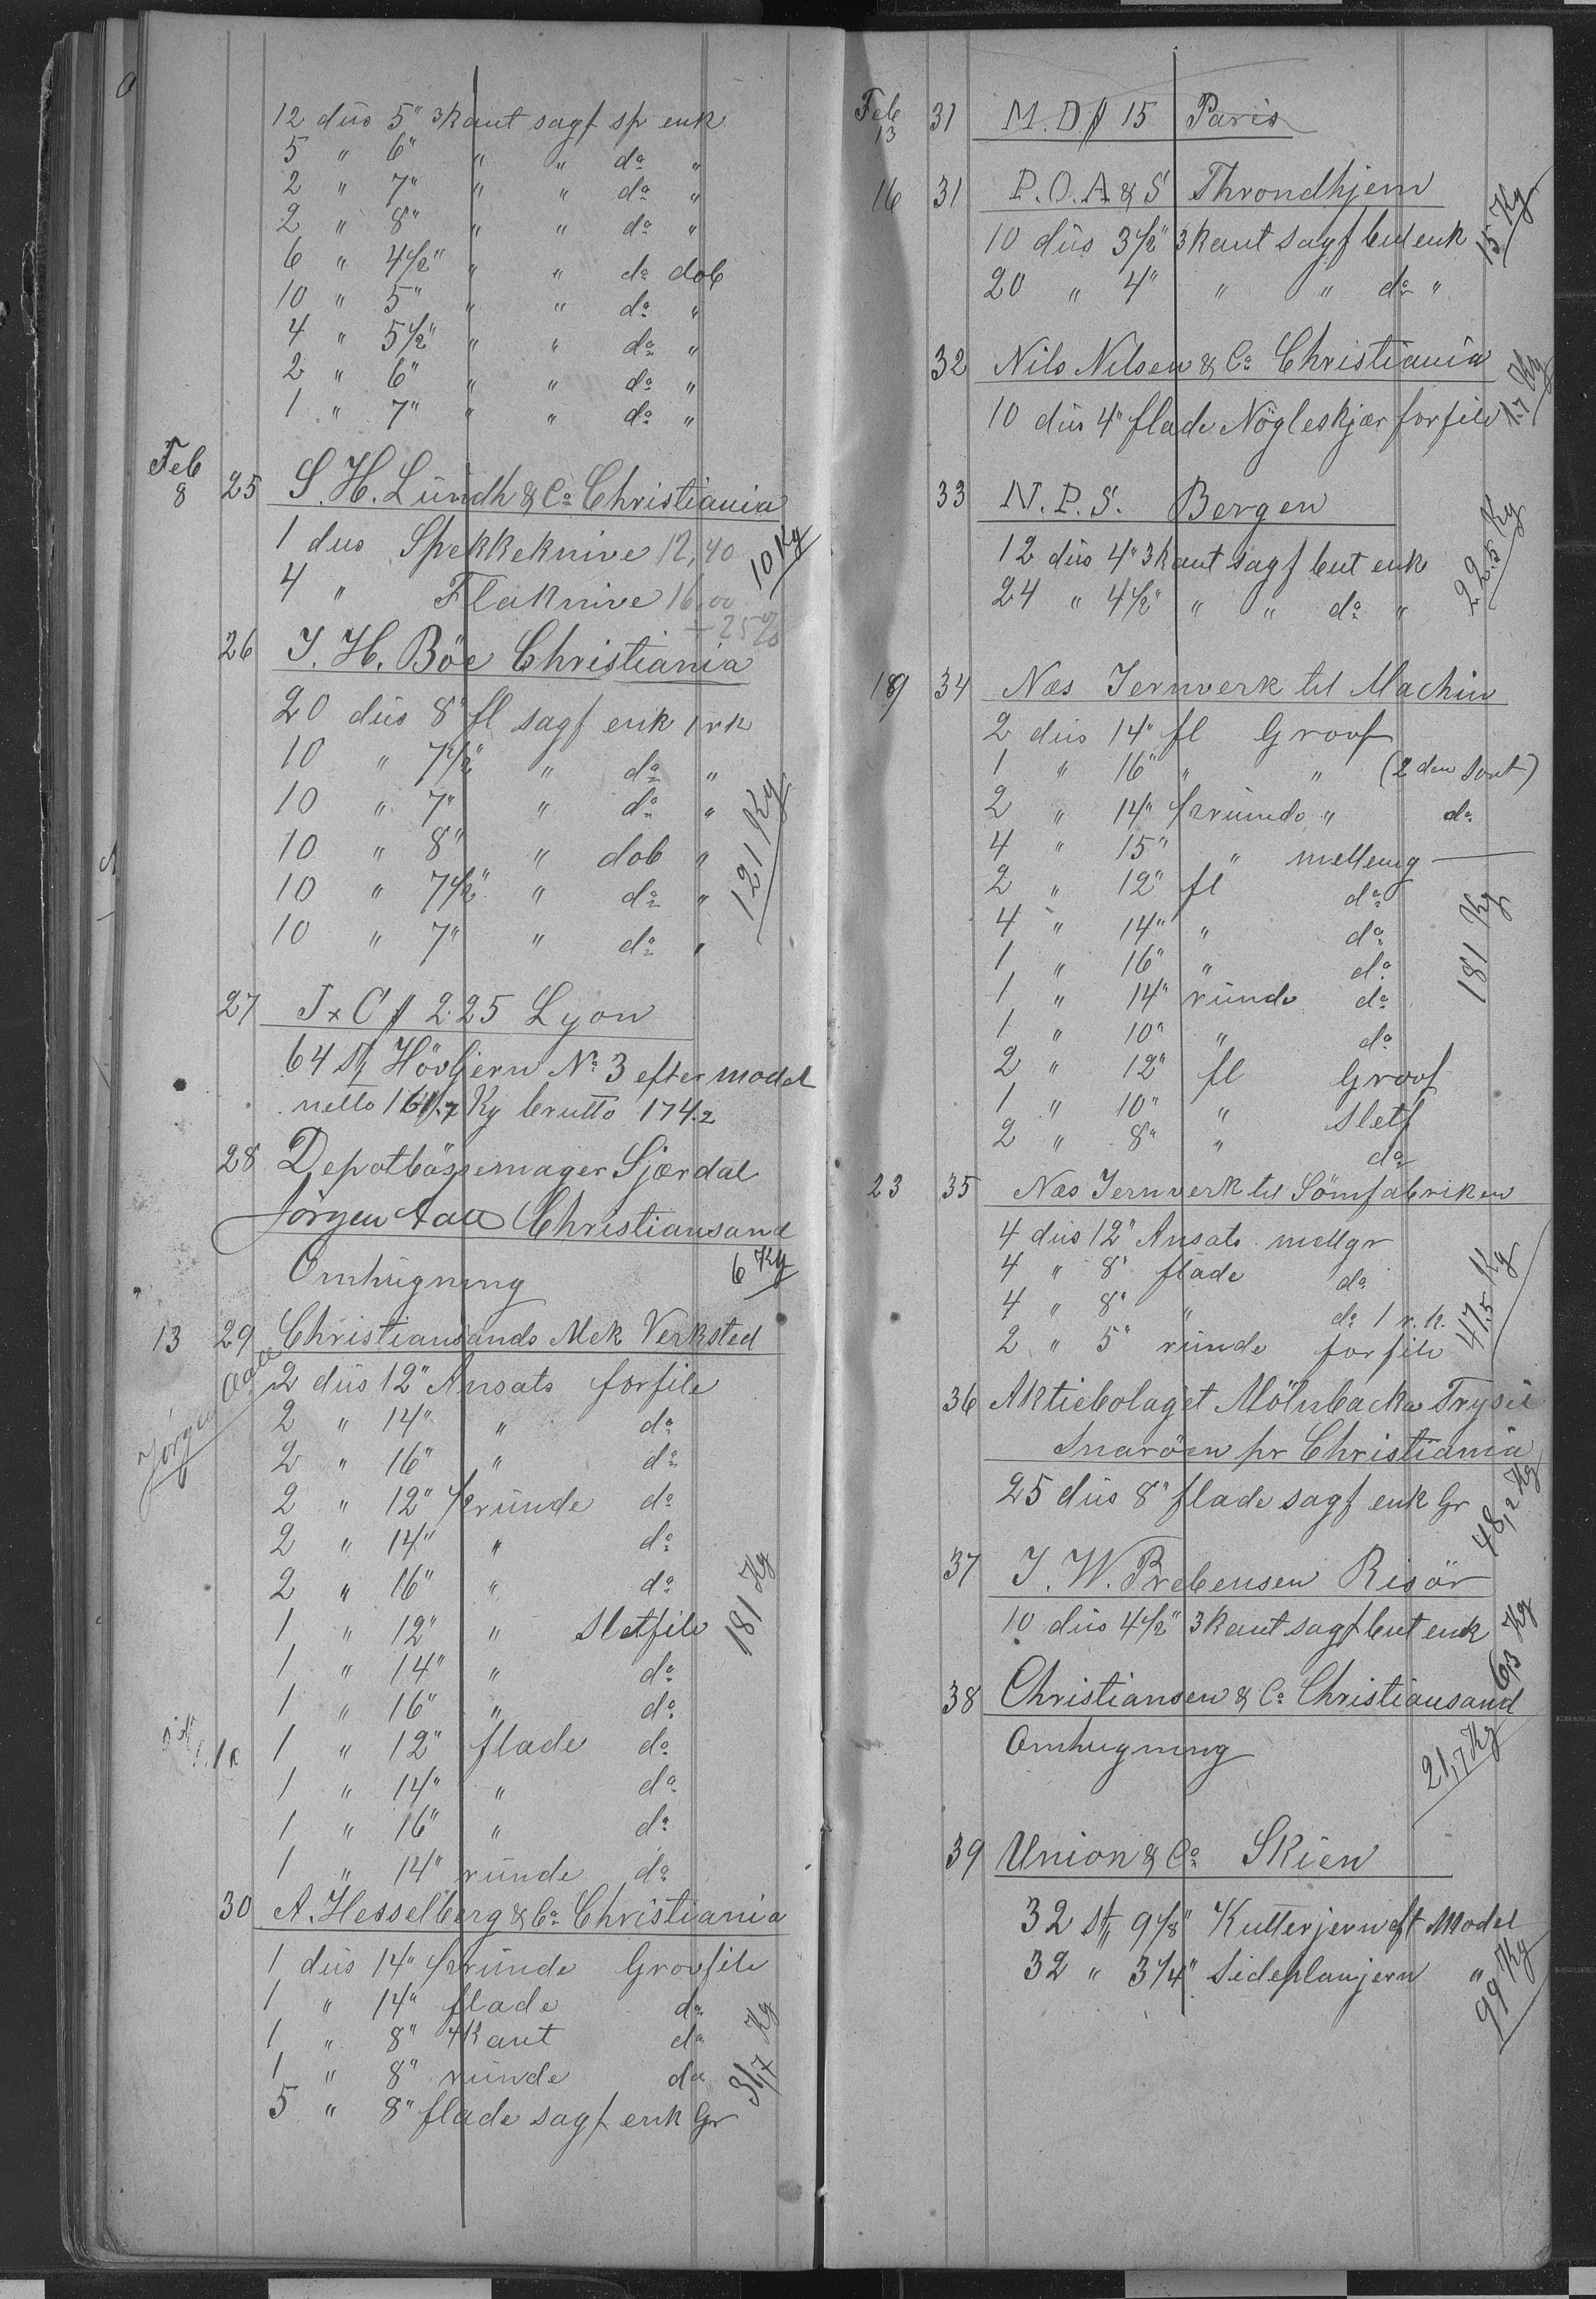 12 dus 5" 3kant sagf sp enk
5 " 6" " " do "
2 " 7" " " do "
2 " 8" " " do "
6 " 4 1/2" " " do dob
10 " 5" " " do "
4 " 5 1/2" " " do "
2 " 6" " " do "
1 " 7" " " do "
Feb 8 25 S. H. Lundh & Co Christiania
1 dus Spekkeknive 12,40
4 " Flaknive 16,00
10 Kg
+ 25%
26 J. H. Böe Christiania
20 dus 8" fl sagf enk 1rk
10 " 7 1/2" " do "
10 " 7" " do "
10 " 8" " dob "
10 " 7 1/2" " do "
10 " 7" " do "
121 Kg
27 J x C # 225 Lyon
64 st Hövljern No 3 efter model
netto 161.7 Kg brutto 174.2
28 Depotbössemager Sjærdal
Jörgen Aall Christiansand
Omhugning 6 Kg
13 29 Christiansands Mek Verksted
Jörgen Aall
2 dus 12" Ansats forfile
2 " 14" " do
2 " 16" " do
2 " 12" 1/2 runde do
2 " 14" " do
2 " 16" " do
1 " 12" " Sletfile
1 " 14" " do
1 " 16" " do
1 " 12" flade do
1 " 14" " do
1 " 16" " do
1 " 14" runde do
181 Kg
30 A. Hesselberg & Co Christiania
1 dus 14" 1/2 runde Grovfile
1 " 14" flade do
1 " 8" 4kant do
1 " 8" runde do
5 " 8" flade sagf enk Gr
31,7 Kg
Feb 13 31 M. D # 15 Paris
16 31 P. O. A & S Throndhjem
10 dus 3 1/2" 3kant sagf but enk
20 " 4" " " do "
15 Kg
32 Nils Nilsen & Co Christiania
10 dus 4" flade Nögleskjær forfile
1.7 Kg
33 N. P. S. Bergen
12 dus 4" 3kant sagf but enk
24 " 4 1/2" " " do "
22.5 Kg
19 34 Næs Jernverk til Machin
2 dus 14" fl Groof
1 " 16" " " (2den Sort)
2 " 14" 1/2 runde " do
4 " 15" " melleng
2 " 12" fl do
4 " 14" " do
1 " 16" " do
1 " 14" runde do
1 " 10" " do
2 " 12" fl Groof
1 " 10" " Sletf
2 " 8" " do
181 Kg
23 35 Næs Jernverk til Sömfabriken
4 dus 12" Ansats mellgr
4 " 8" flade do
4 " 8" " do 1 r. k.
2 " 5" runde forfile
47.5 Kg
36 Aktiebolaget Mölnbacka Trysil
Snaröen pr Christiania
25 dus 8" flade sagf enk Gr
48,2 Kg
37 J. W. Prebensen Risör
10 dus 4 1/2" 3kant sagf but enk
6,3 Kg
38 Christiansen & Co Christiansand
Omhugning
21,7 Kg
39 Union & Co Skien
32 st 9 1/8" Kutterjern eft Model
32 " 3 1/4" Sideplanjern "
99 Kg